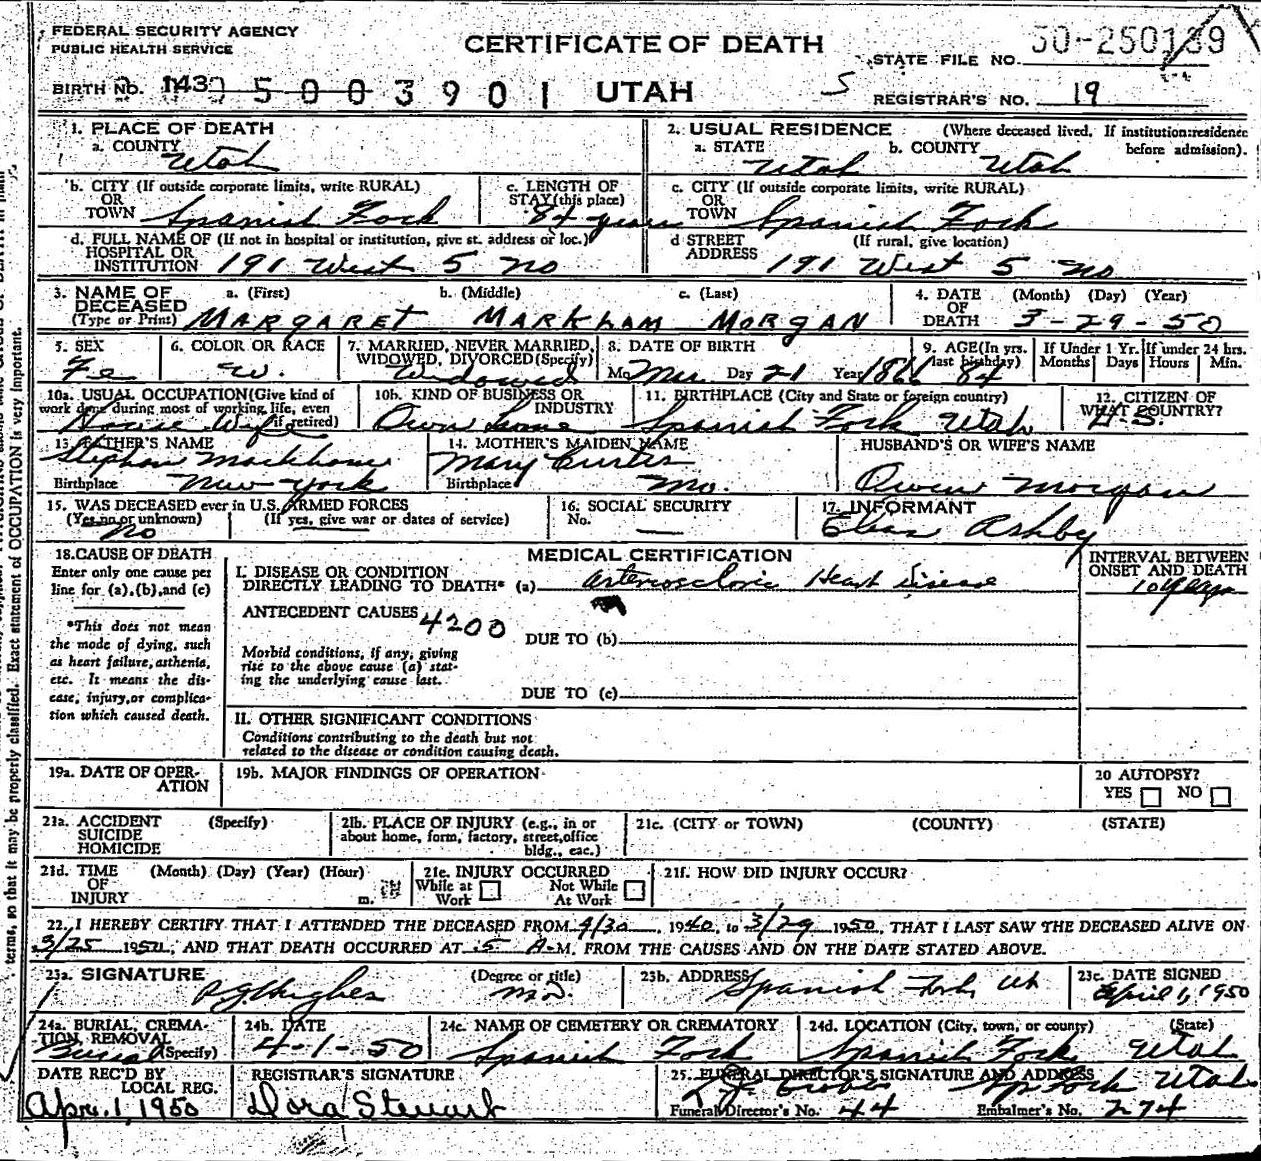 FEDERAL SECURITY AGENCY
PUBLIC HEALTH SERVICE
CERTIFICATE OF DEATH
STATE FILE NO. 50-250139
BIRTH NO. 143 5003901 UTAH
REGISTRAR'S NO. 19
1. PLACE OF DEATH
a. COUNTY Utah
2. USUAL RESIDENCE (Where deceased lived. If institution: residence before admission).
a. STATE Utah b. COUNTY Utah
b. CITY (If outside corporate limits, write RURAL)
OR
TOWN Spanish Fork
c. LENGTH OF
STAY (this place)
84 years
c. CITY (If outside corporate limits, write RURAL)
OR
TOWN Spanish Fork
d. FULL NAME OF (If not in hospital or institution, give st. address or loc.)
HOSPITAL OR
INSTITUTION 191 West 5 no
d STREET (If rural, give location)
ADDRESS 191 West 5 no
3. NAME OF DECEASED (Type or Print)
a. (First) b. (Middle) c. (Last)
MARGARET MARKHAM MORGAN
4. DATE OF DEATH (Month) (Day) (Year)
3-29-50
5. SEX
Fe
6. COLOR OR RACE
W.
7. MARRIED, NEVER MARRIED, WIDOWED, DIVORCED (Specify)
Widowed
8. DATE OF BIRTH
Mo. Mar Day 21 Year 1866
9. AGE (In yrs. last birthday)
84
If Under 1 Yr.
Months Days
If under 24 hrs.
Hours Min.
10a. USUAL OCCUPATION (Give kind of work done during most of working life, even if retired)
House Wife
10b. KIND OF BUSINESS OR INDUSTRY
Own home
11. BIRTHPLACE (City and State or foreign country)
Spanish Fork Utah
12. CITIZEN OF WHAT COUNTRY?
U.S.
13 FATHER'S NAME
Stephen Markham
Birthplace New York
14. MOTHER'S MAIDEN NAME
Mary Curtis
Birthplace Mo.
HUSBAND'S OR WIFE'S NAME
Owen Morgan
15. WAS DECEASED ever in U.S. ARMED FORCES
(Yes no or unknown) (If yes, give war or dates of service)
No
16. SOCIAL SECURITY
No. —
17. INFORMANT
Ashby
18. CAUSE OF DEATH
Enter only one cause per
line for (a), (b), and (c)
*This does not mean
the mode of dying, such
as heart failure, asthenia,
etc. It means the dis-
ease, injury, or complica-
tion which caused death.
MEDICAL CERTIFICATION
I. DISEASE OR CONDITION
DIRECTLY LEADING TO DEATH* (a) Arterioscloric Heart Disease
ANTECEDENT CAUSES 4200
DUE TO (b)
Morbid conditions, if any, giving
rise to the above cause (a) stat-
ing the underlying cause last.
DUE TO (c)
II. OTHER SIGNIFICANT CONDITIONS
Conditions contributing to the death but not
related to the disease or condition causing death.
INTERVAL BETWEEN
ONSET AND DEATH
10 years
19a. DATE OF OPER-
ATION
19b. MAJOR FINDINGS OF OPERATION
20 AUTOPSY?
YES NO
21a. ACCIDENT (Specify)
SUICIDE
HOMICIDE
21b. PLACE OF INJURY (e.g., in or
about home, form, factory, street, office
bldg., eac.)
21c. (CITY or TOWN) (COUNTY) (STATE)
21d. TIME (Month) (Day) (Year) (Hour)
OF
INJURY m.
21e. INJURY OCCURRED
While at Work Not While At Work
21f. HOW DID INJURY OCCUR?
22. I HEREBY CERTIFY THAT I ATTENDED THE DECEASED FROM 4/30, 1940, to 3/29 1950, THAT I LAST SAW THE DECEASED ALIVE ON
3/25 1950, AND THAT DEATH OCCURRED AT 5 A.M. FROM THE CAUSES AND ON THE DATE STATED ABOVE.
23a. SIGNATURE (Degree or title)
Hughes M.D.
23b. ADDRESS
Spanish Fork Ut
23c. DATE SIGNED
April 1, 1950
24a. BURIAL, CREMA-
TION, REMOVAL
(Specify)
Burial
24b. DATE
4-1-50
24c. NAME OF CEMETERY OR CREMATORY
Spanish Fork
24d. LOCATION (City, town, or county) (State)
Spanish Fork Utah
DATE REC'D BY
LOCAL REG.
Apr. 1, 1950
REGISTRAR'S SIGNATURE
Dora Stewart
25. FUNERAL DIRECTOR'S SIGNATURE AND ADDRESS
Sp Fork Utah
Funeral Director's No. 44 Embalmer's No. 274
terms, so that it may be properly classified. Exact statement of OCCUPATION is very important.